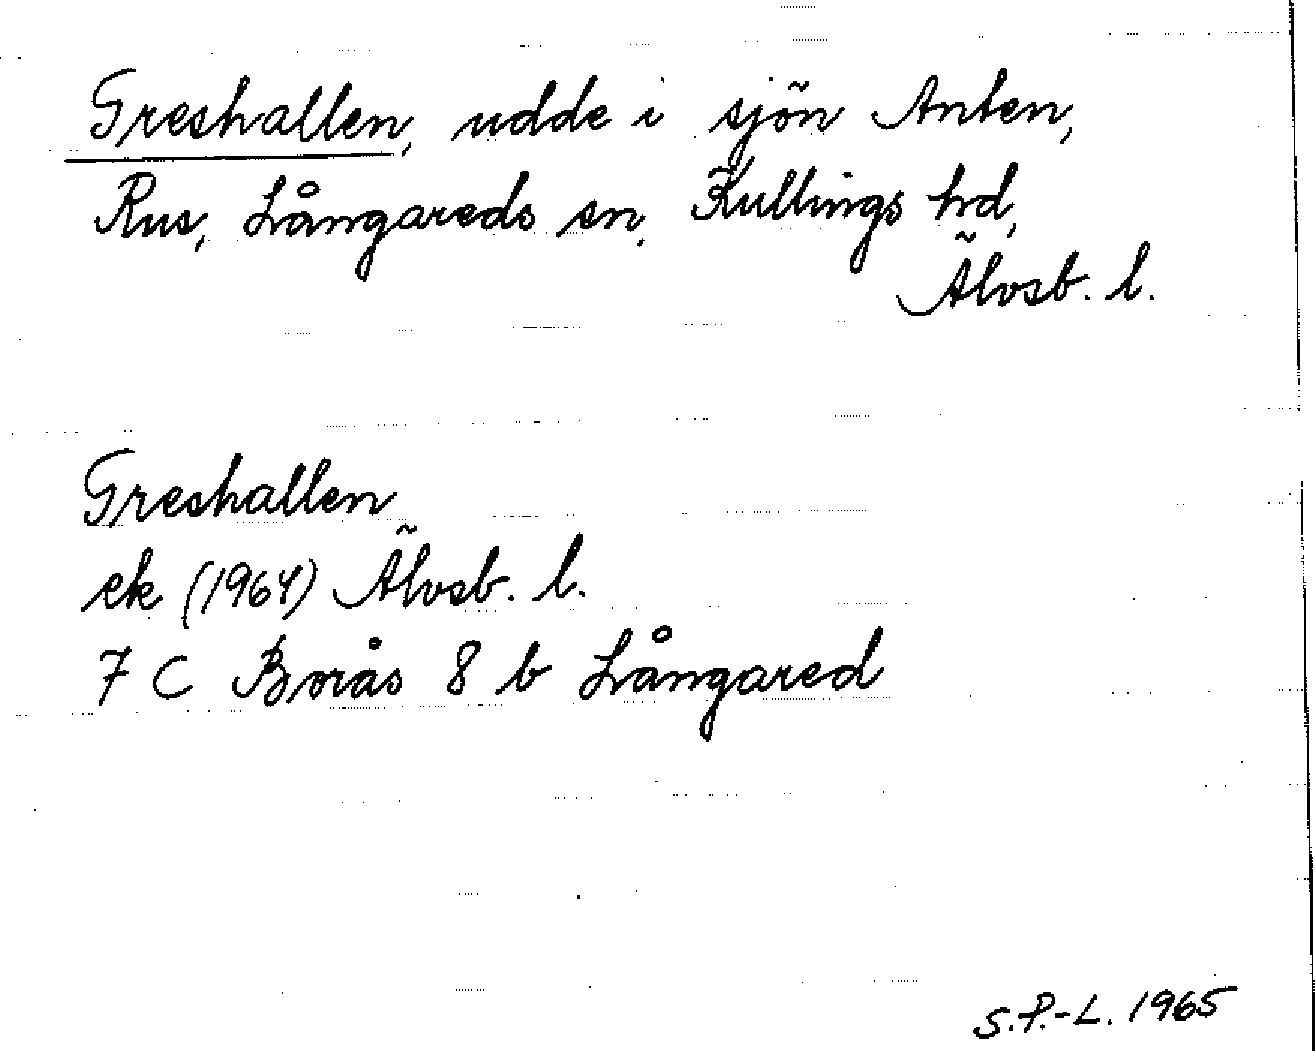 Greshallen, udde i sjön Anten,
Rus, Långareds sn, Kullings hd,
Älvsb. l.
Greshallen
ek (1964) Älvsb. l.
7 C Borås 8 b Långared
S.P.-L. 1965